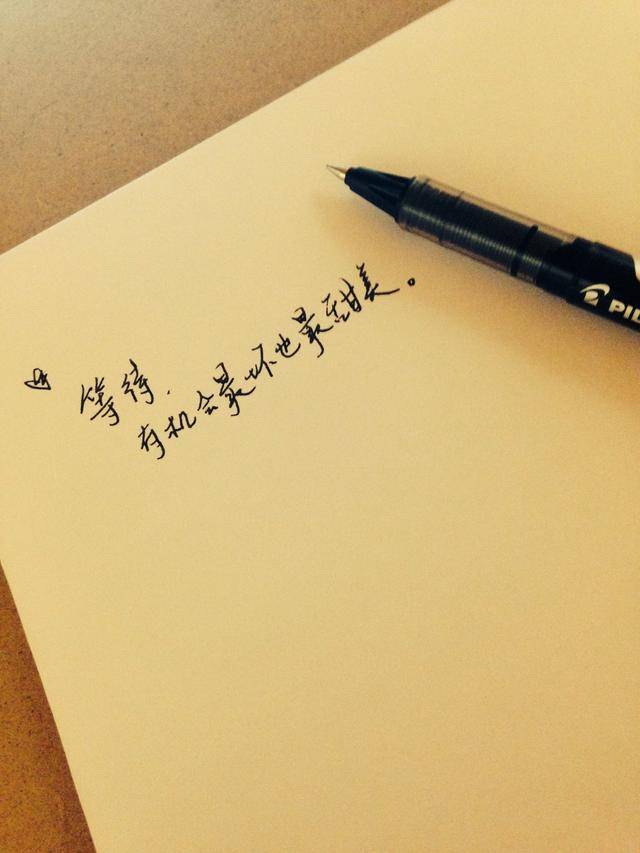 等待.
有机会最坏也最甜美。
PIL